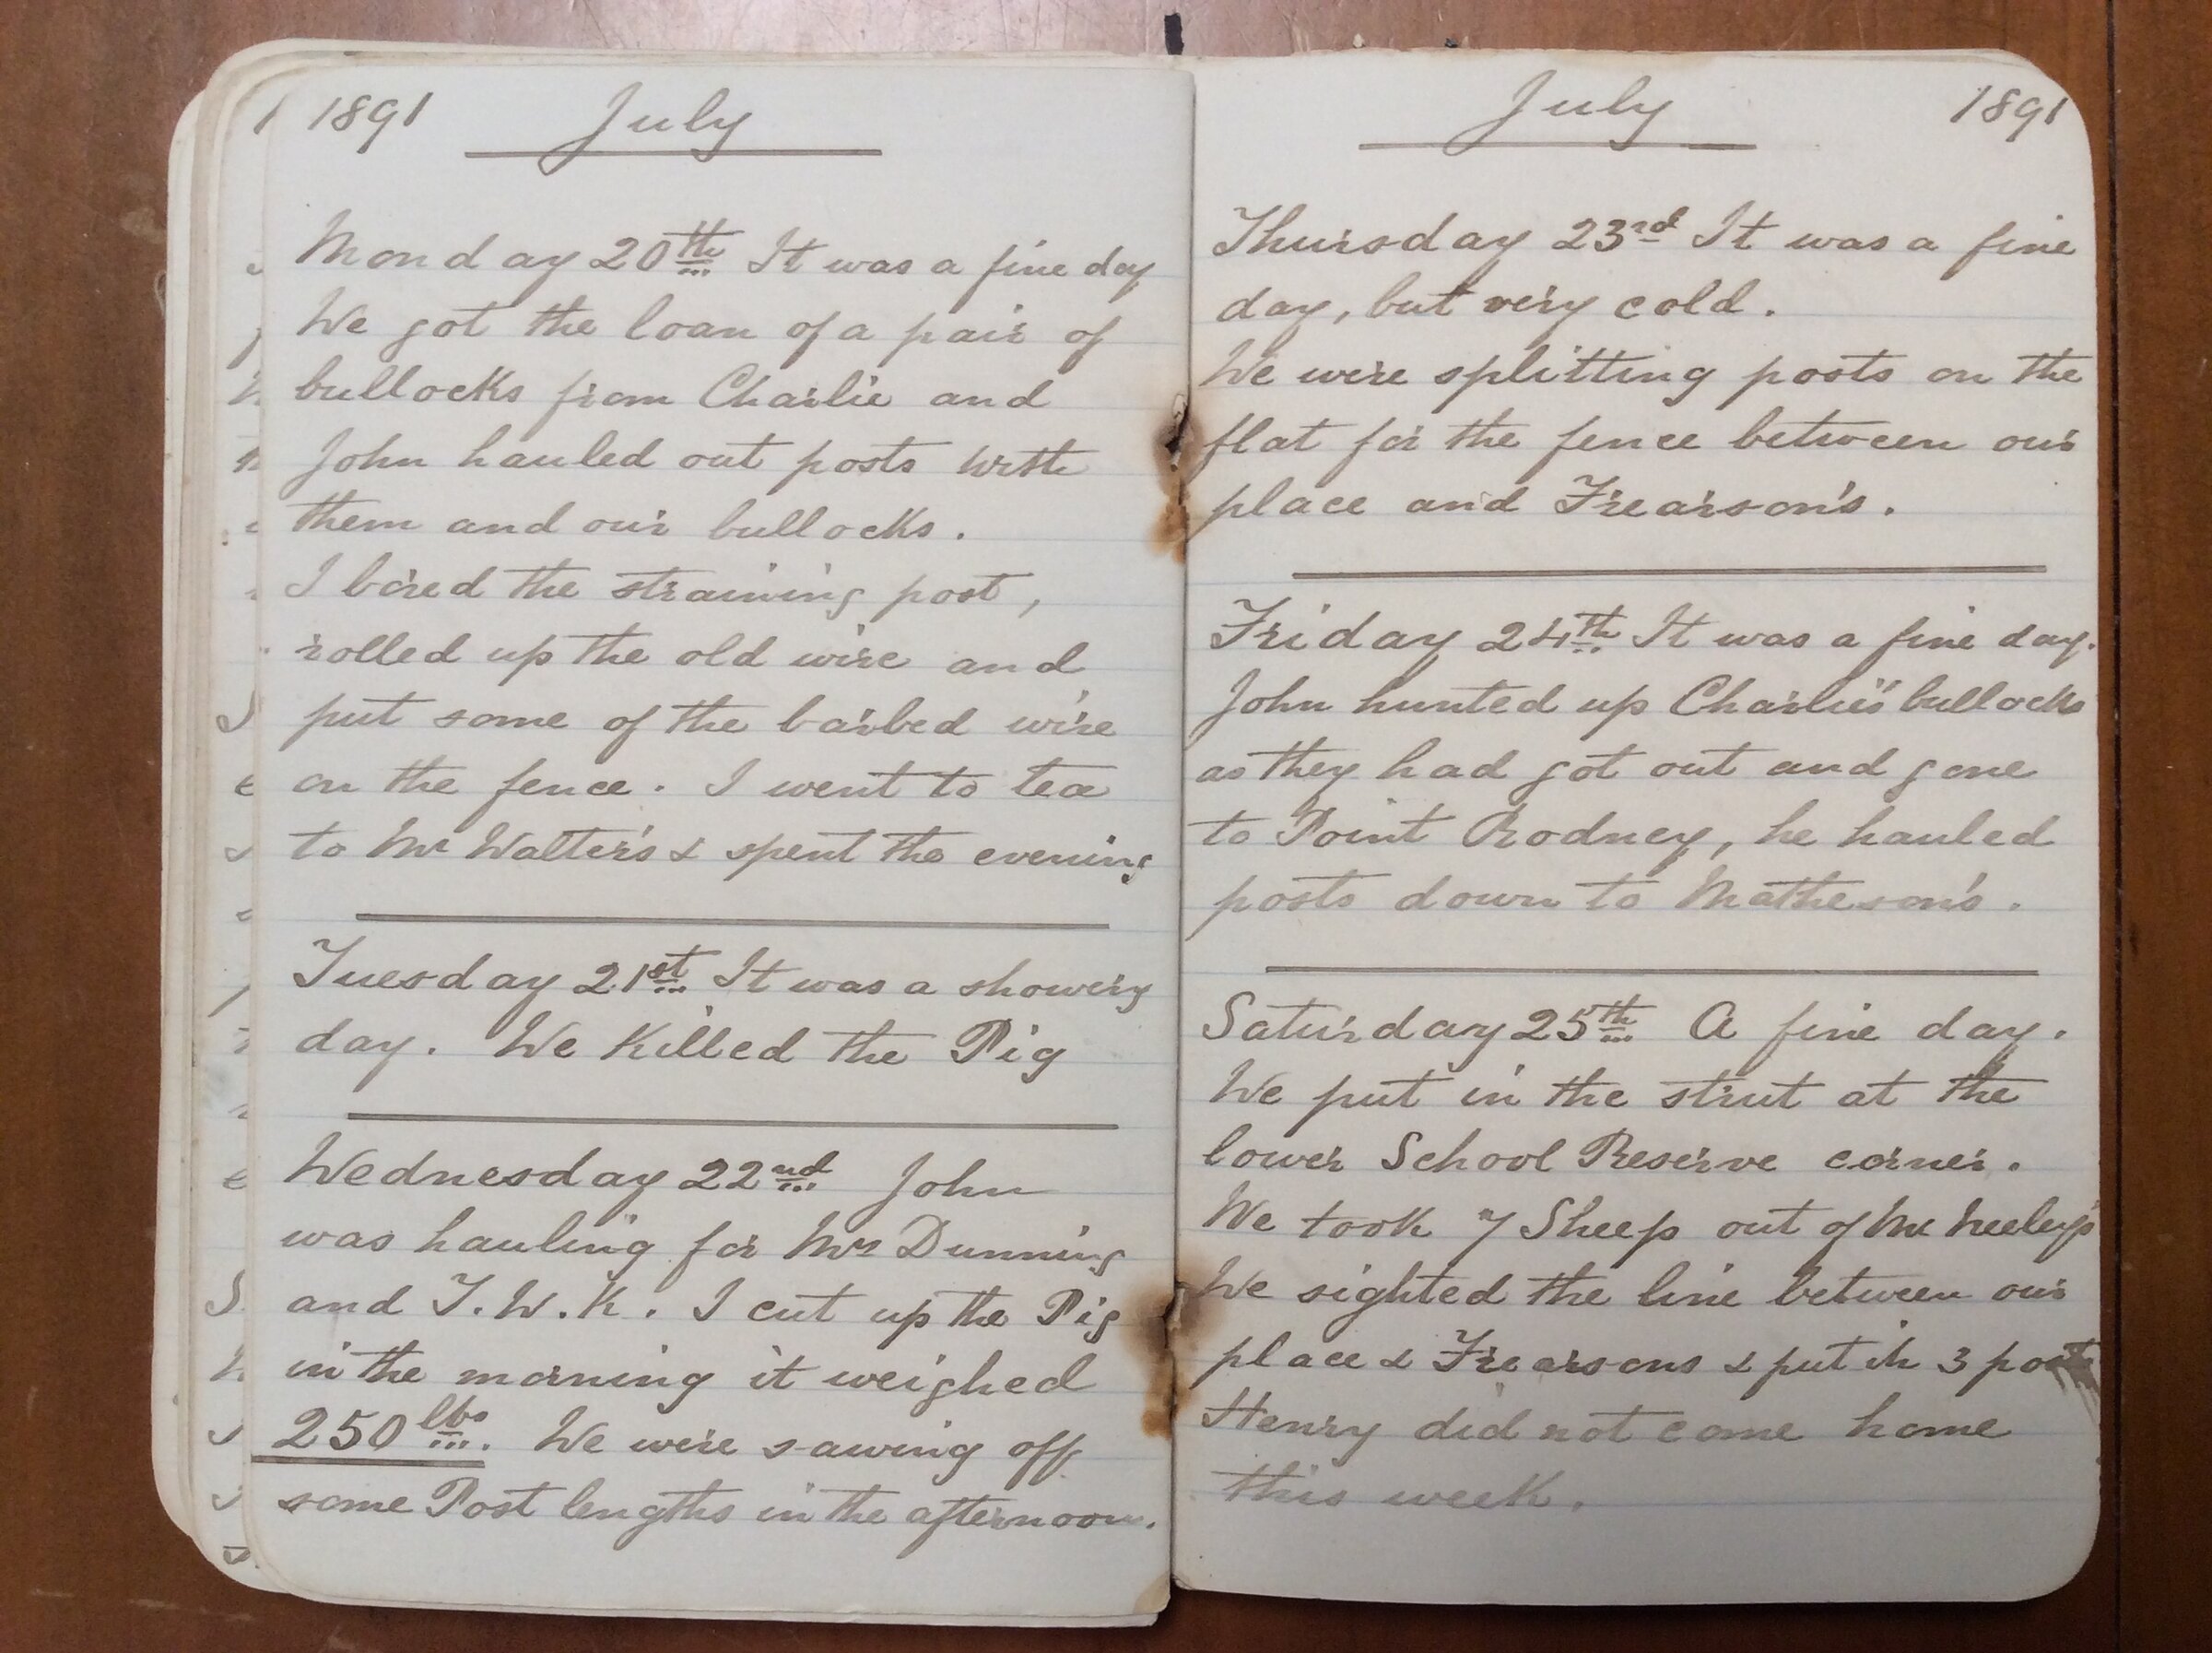 1891 July
Monday 20th It was a fine day
We got the loan of a pair of
bullocks from Charlie and
John hauled out posts with
them and our bullocks.
I bored the straining post,
rolled up the old wire and
put some of the barbed wire
on the fence. I went to tea
to Mr Walter's & spent the evening
Tuesday 21st It was a showery
day. We Killed the Pig
Wednesday 22nd John
was hauling for Mrs Dunning
and T.W.K. I cut up the Pig
in the morning it weighed
250 lbs. We were sawing off
some Post lengths in the afternoon.
July 1891
Thursday 23rd It was a fine
day, but very cold.
We were splitting posts on the
flat for the fence between our
place and Frearson's.
Friday 24th It was a fine day.
John hunted up Charlie's bullocks
as they had got out and gone
to Point Rodney, he hauled
posts down to Matheson's.
Saturday 25th A fine day.
We put in the strut at the
lower School Reserve corner.
We took 7 Sheep out of Mr
We sighted the line between our
place & Frearsons & put in 3 posts
Henry did not come home
this week.